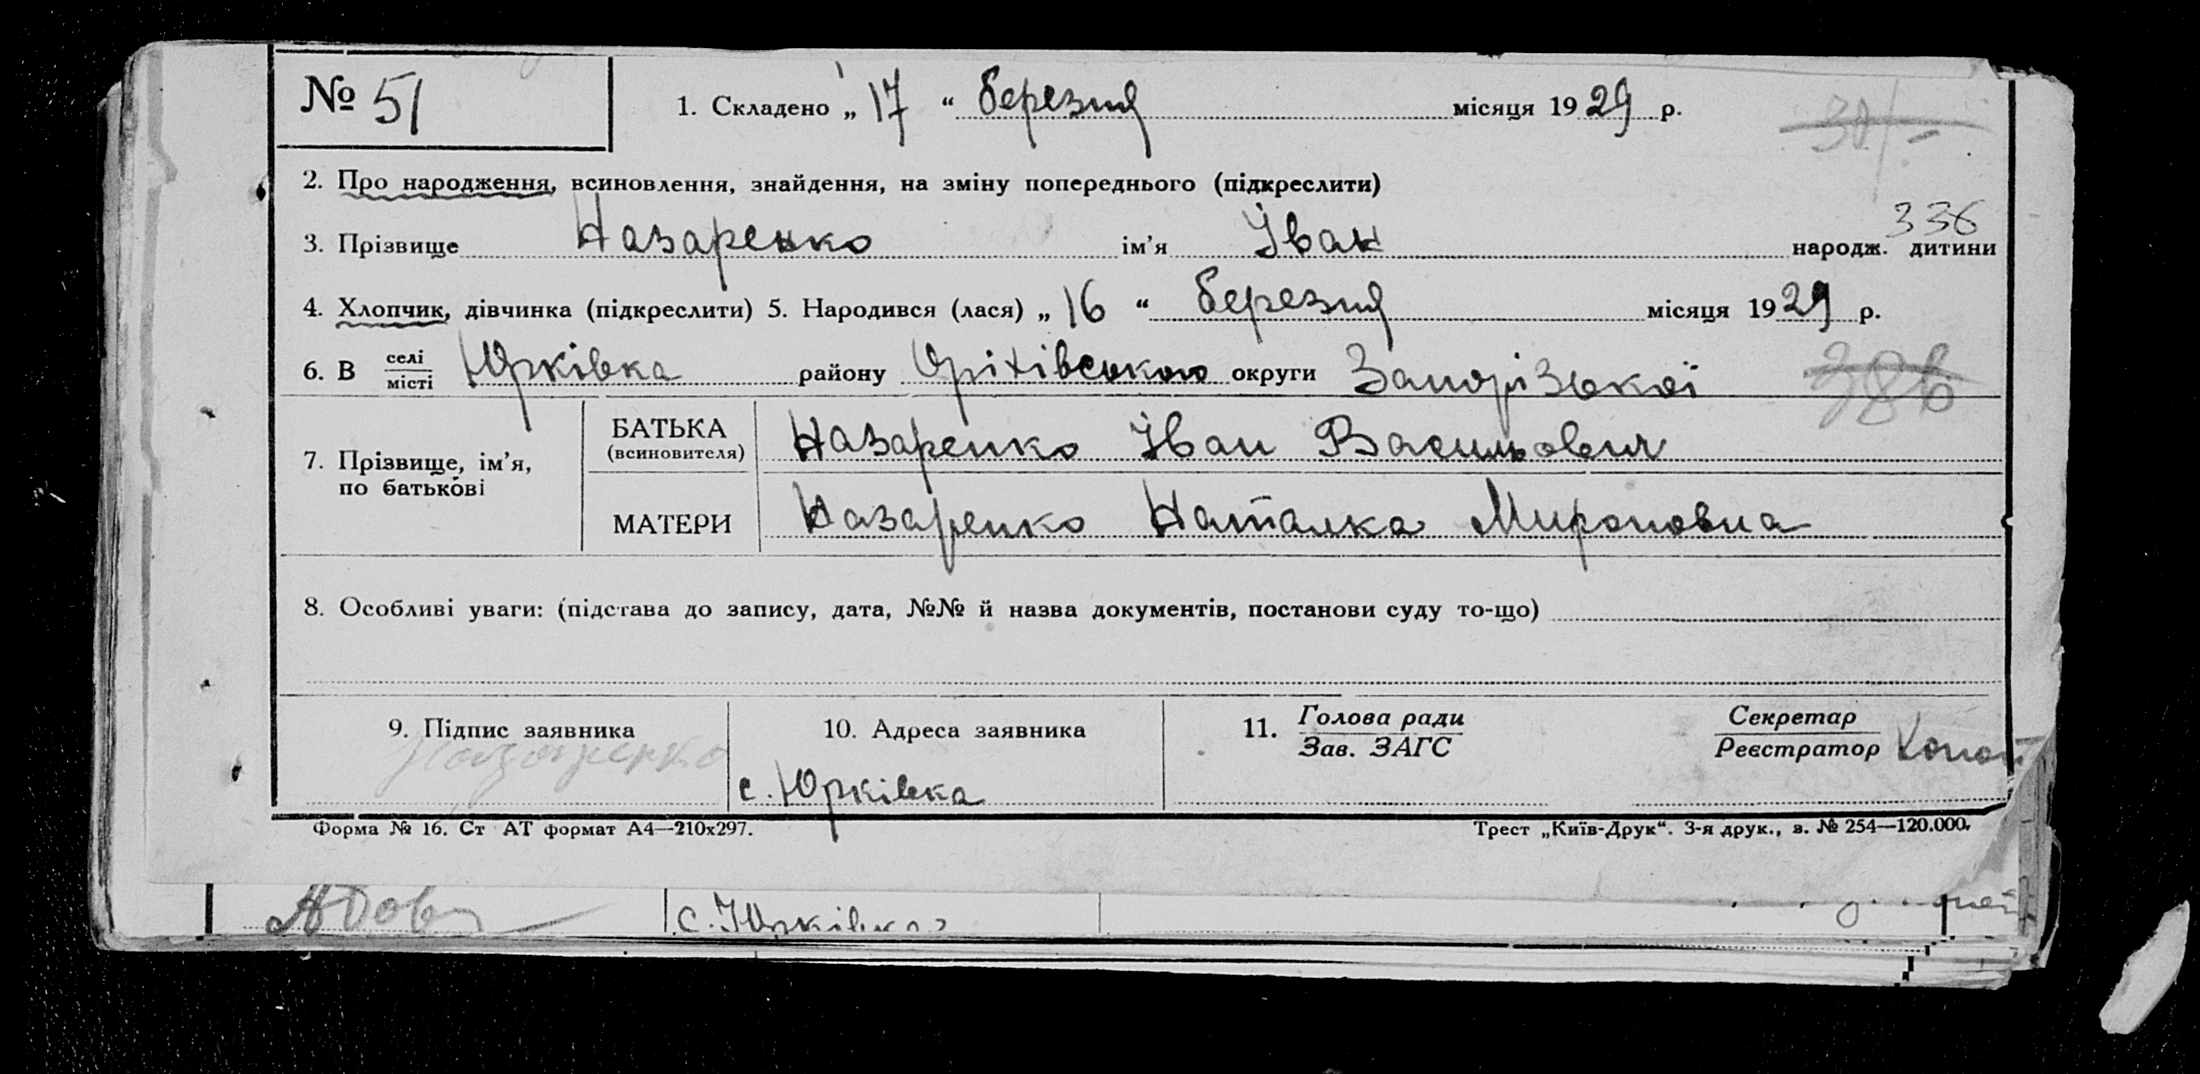 № 51 1. Складено „ 17 “ березня місяця 1929 р.
2. Про народження, всиновлення, знайдення, на зміну попереднього (підкреслити)
336
3. Прізвище Назаренко ім’я Іван народж. дитини
4. Хлопчик, дівчинка (підкреслити) 5. Народився (лася) „ 16 “ березня місяця 1929 р.
6. В селі/місті Юрківка району Оріхівського округи Запорізької
386
7. Прізвище, ім’я, по батькові
БАТЬКА (всиновителя) Назаренко Іван Васильович
МАТЕРИ Назаренко Наталка Мироновна
8. Особливі уваги: (підстава до запису, дата, №№ й назва документів, постанови суду то-що)
9. Підпис заявника 10. Адреса заявника 11. Голова ради/Зав. ЗАГС Секретар/Реєстратор
Назаренко с. Юрківка
Форма № 16. Ст АТ формат А4—210х297. Трест „Київ-Друк“. 3-я друк., з. № 254—120.000.
с. Юрківка